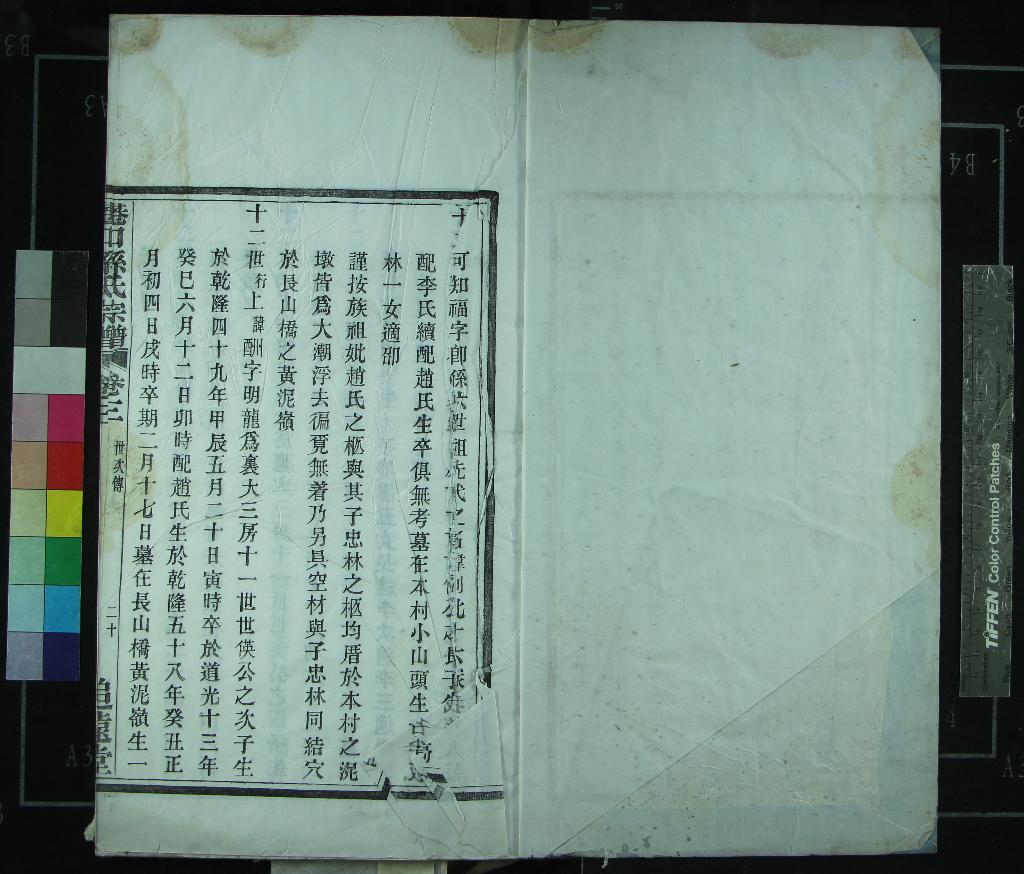 可知福字卽係
配李氏續配趙氏生卒俱無考墓在本村小山頭生
林一女適邵
謹按族祖妣趙氏之柩與其子忠林之柩均厝於本村之泥
墩皆爲大潮浮去徧覓無着乃另具空材與子忠林同結穴
於長山橋之黃泥嶺
十二世行上諱酬字明龍爲裏大三房十一世世倓公之次子生
於乾隆四十九年甲辰五月二十日寅時卒於道光十三年
癸巳六月十二日卯時配趙氏生於乾隆五十八年癸丑正
月初四日戌時卒期二月十七日墓在長山橋黃泥嶺生一
孫氏宗譜 卷之二 世次傳 二十 追遠堂
TIFFEN Color Control Patches
B4
A3
B3